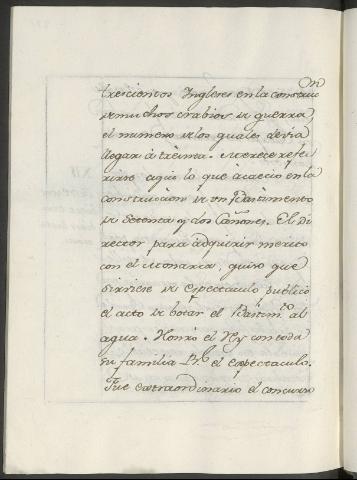 trescientos Ingleses en la construc on
de muchos Nabios de guerra,
el numero de los quales devia
llegar à treinta. Merece refe
rirse aqui lo que acaeciò en la
construcciòn de un Bastimento
de Setenta y dos Cañones. El Di
rector para adquirir merito
con el Monarca, quiso que
sirviese de espectaculo publico
el acto de botar el Bastim.to al
agua. Honrò el Rey con toda
su familia R.l el espectaculo.
Fue extraordinario el concurso